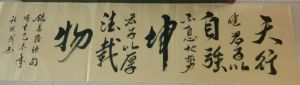 天行
健君子以
自強
不息地勢
坤
君子以厚
德載
物